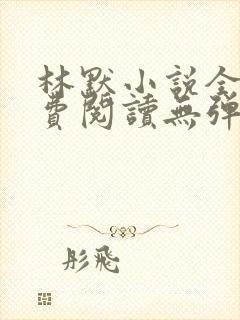 林默小说全
費閱讀無弹
彤飛